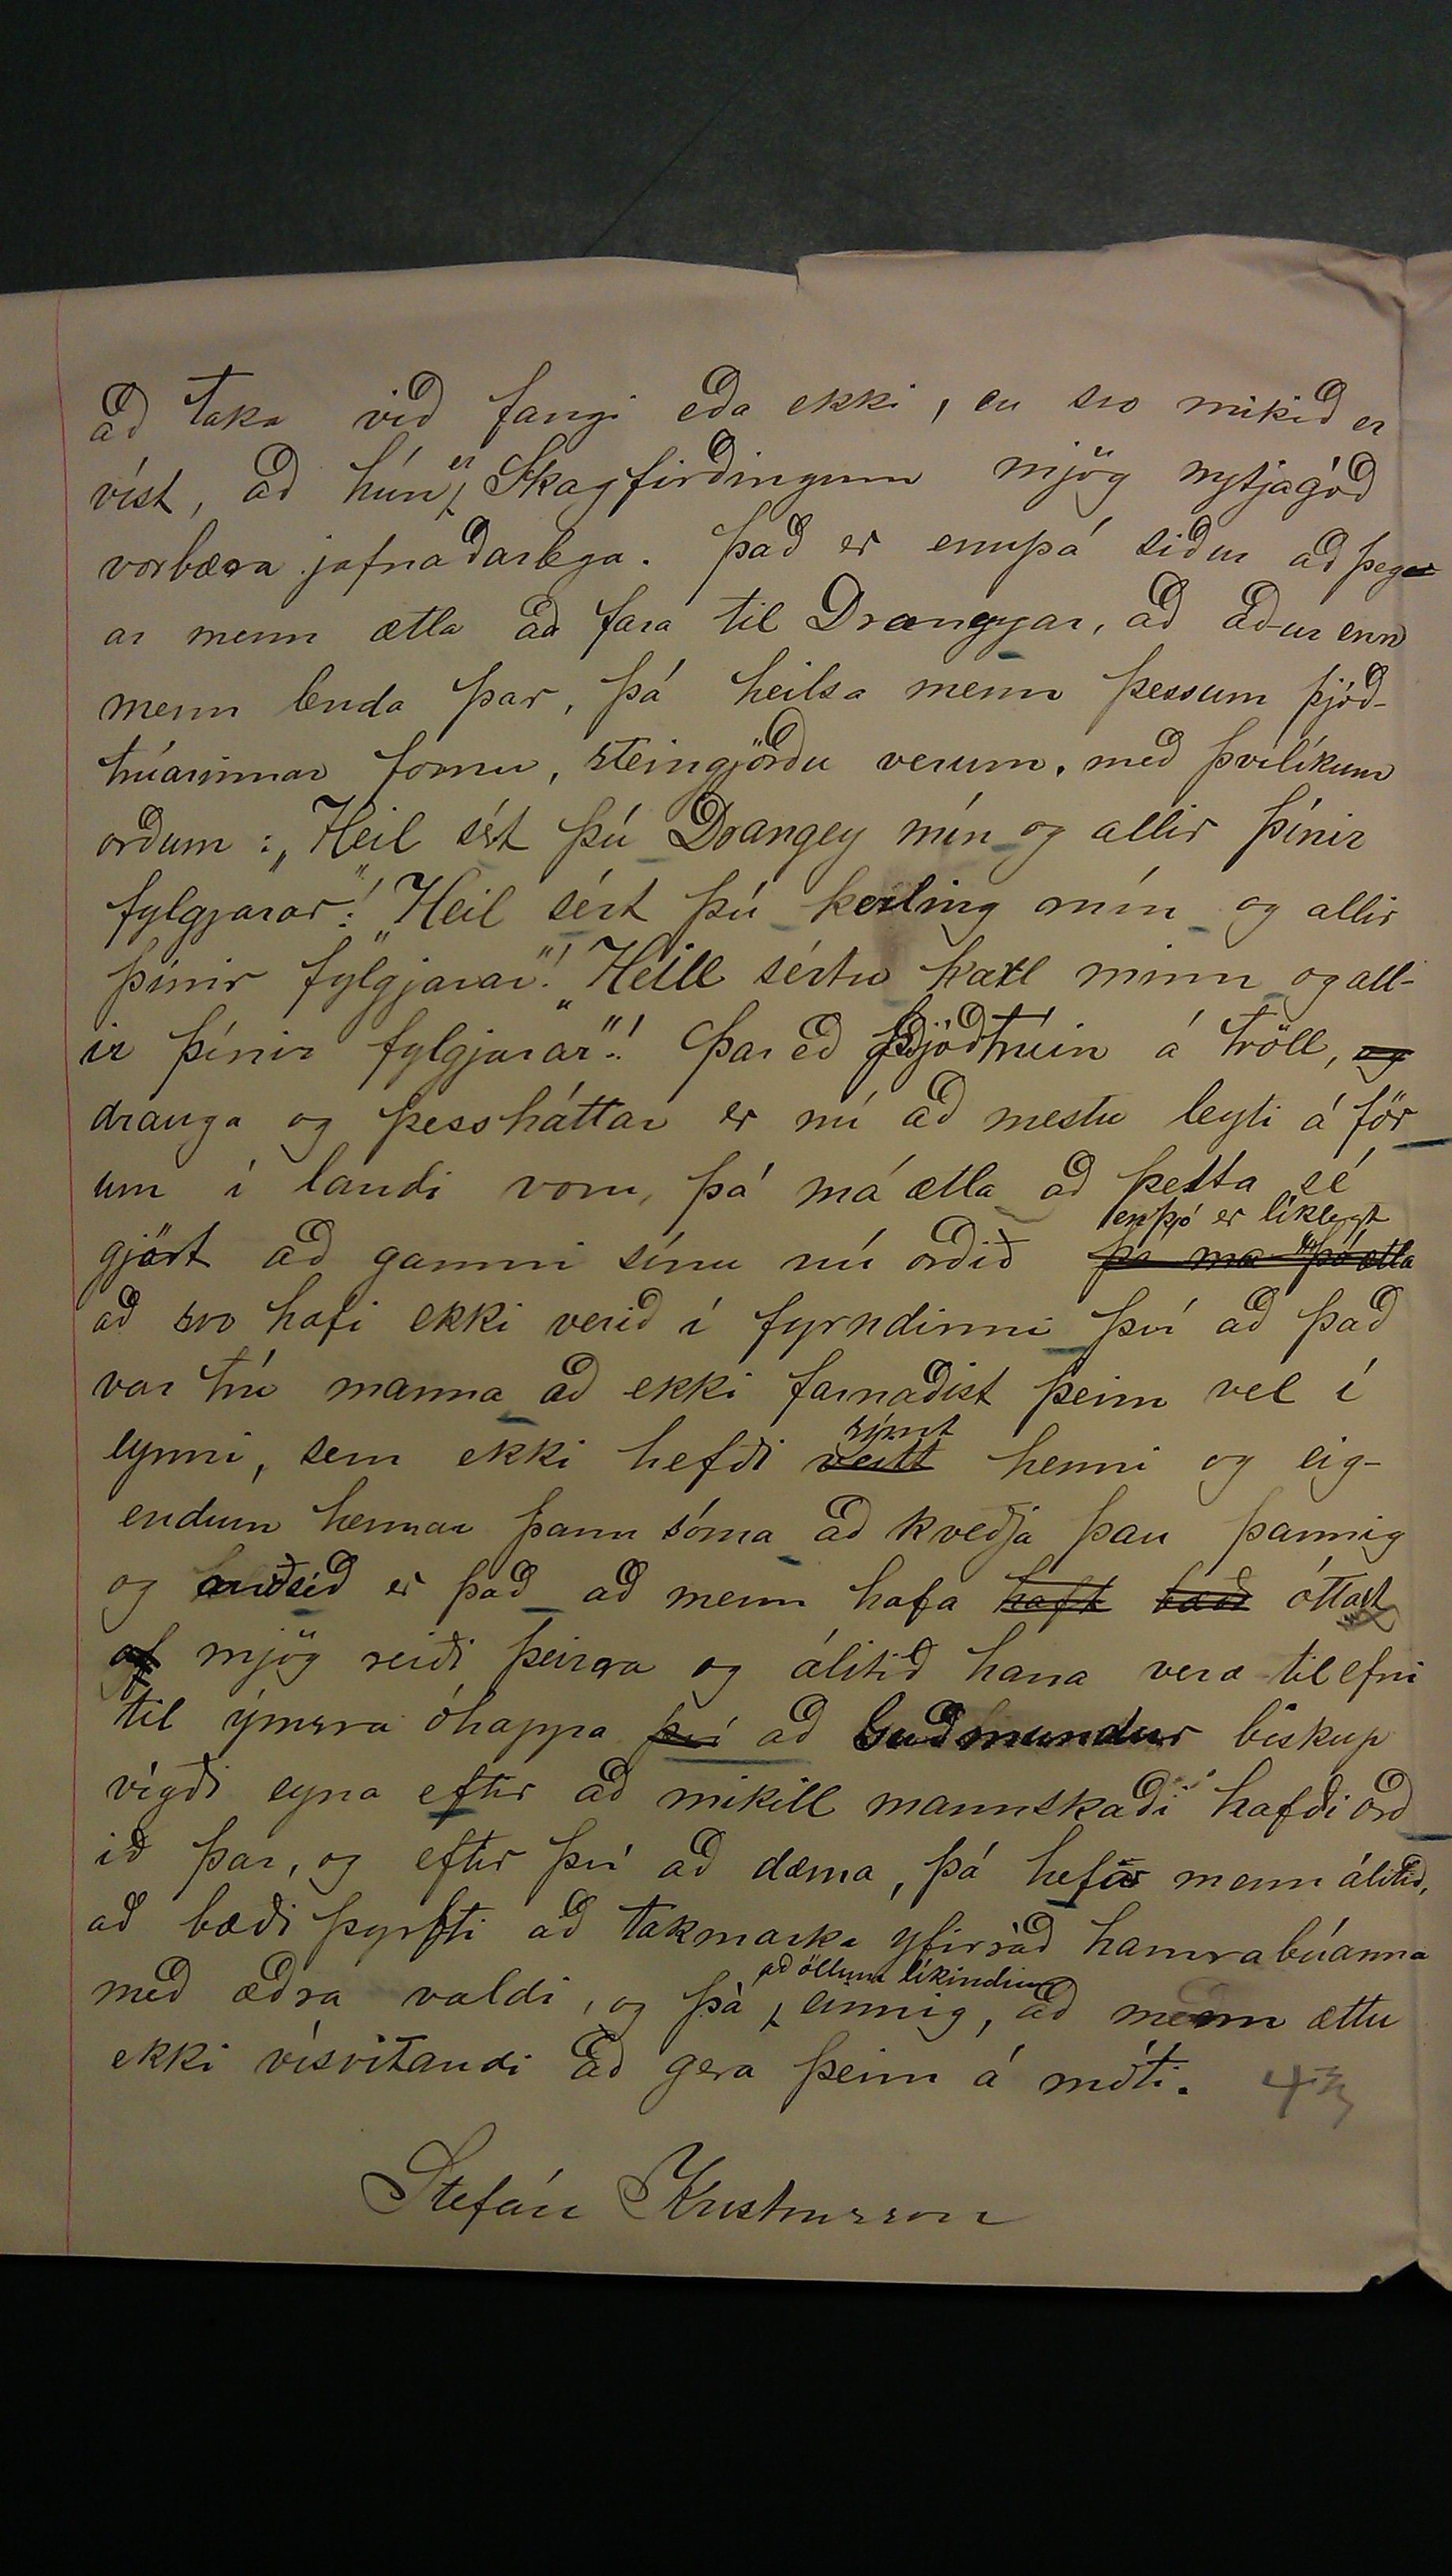 að taka við fangi eða ekki, en svo mikið er
víst, að hún er Skagfirðingum mjög nytjagóð
vorbæra jafnaðarlega. Það er ennþá siður að þeg
ar menn ætla að fara til Drangeyar, að áður enn
menn lenda þar, þá heilsa menn þessum þjóð-
trúarinnar fornu, steingjörðu verum, með þvílíkum
orðum: „Heil sért þú Drangey mín og allir þínir
fylgjarar"! „Heil sért þú kerling mín og allir
þínir fylgjarar"! „Heill sértu karl minn og all-
ir þínir fylgjarar"! Þar eð þjóðtrúin á tröll, og
drauga og þessháttar er nú að mestu leyti á för
um í landi voru, þá má ætla að þetta sé
en þó er líklegt
gjört að gamni sínu nú orðið þá má þó ætla
að svo hafi ekki verið í fyrndinni því að það
var trú manna að ekki farnaðist þeim vel í
sýnt
eynni, sem ekki hefði veitt henni og eig-
endum hennar þann sóma að kveðja þau þannig
og auðséð er það að menn hafa haft óttast
af mjög reiði þeirra og álitið hana vera tilefni
til ýmsra óhappa því að Guðmundur biskup
vígði eyna eftir að mikill mannskaði hafði orð
ið þar, og eftir því að dæma, þá hefir menn álitið,
að bæði þyrfti að takmarka yfirráð hamrabúanna
að öllum líkindum
með æðra valdi, og þá einnig, að menn ættu
ekki vísvitandi að gera þeim á móti.
Stefán Kristinsson